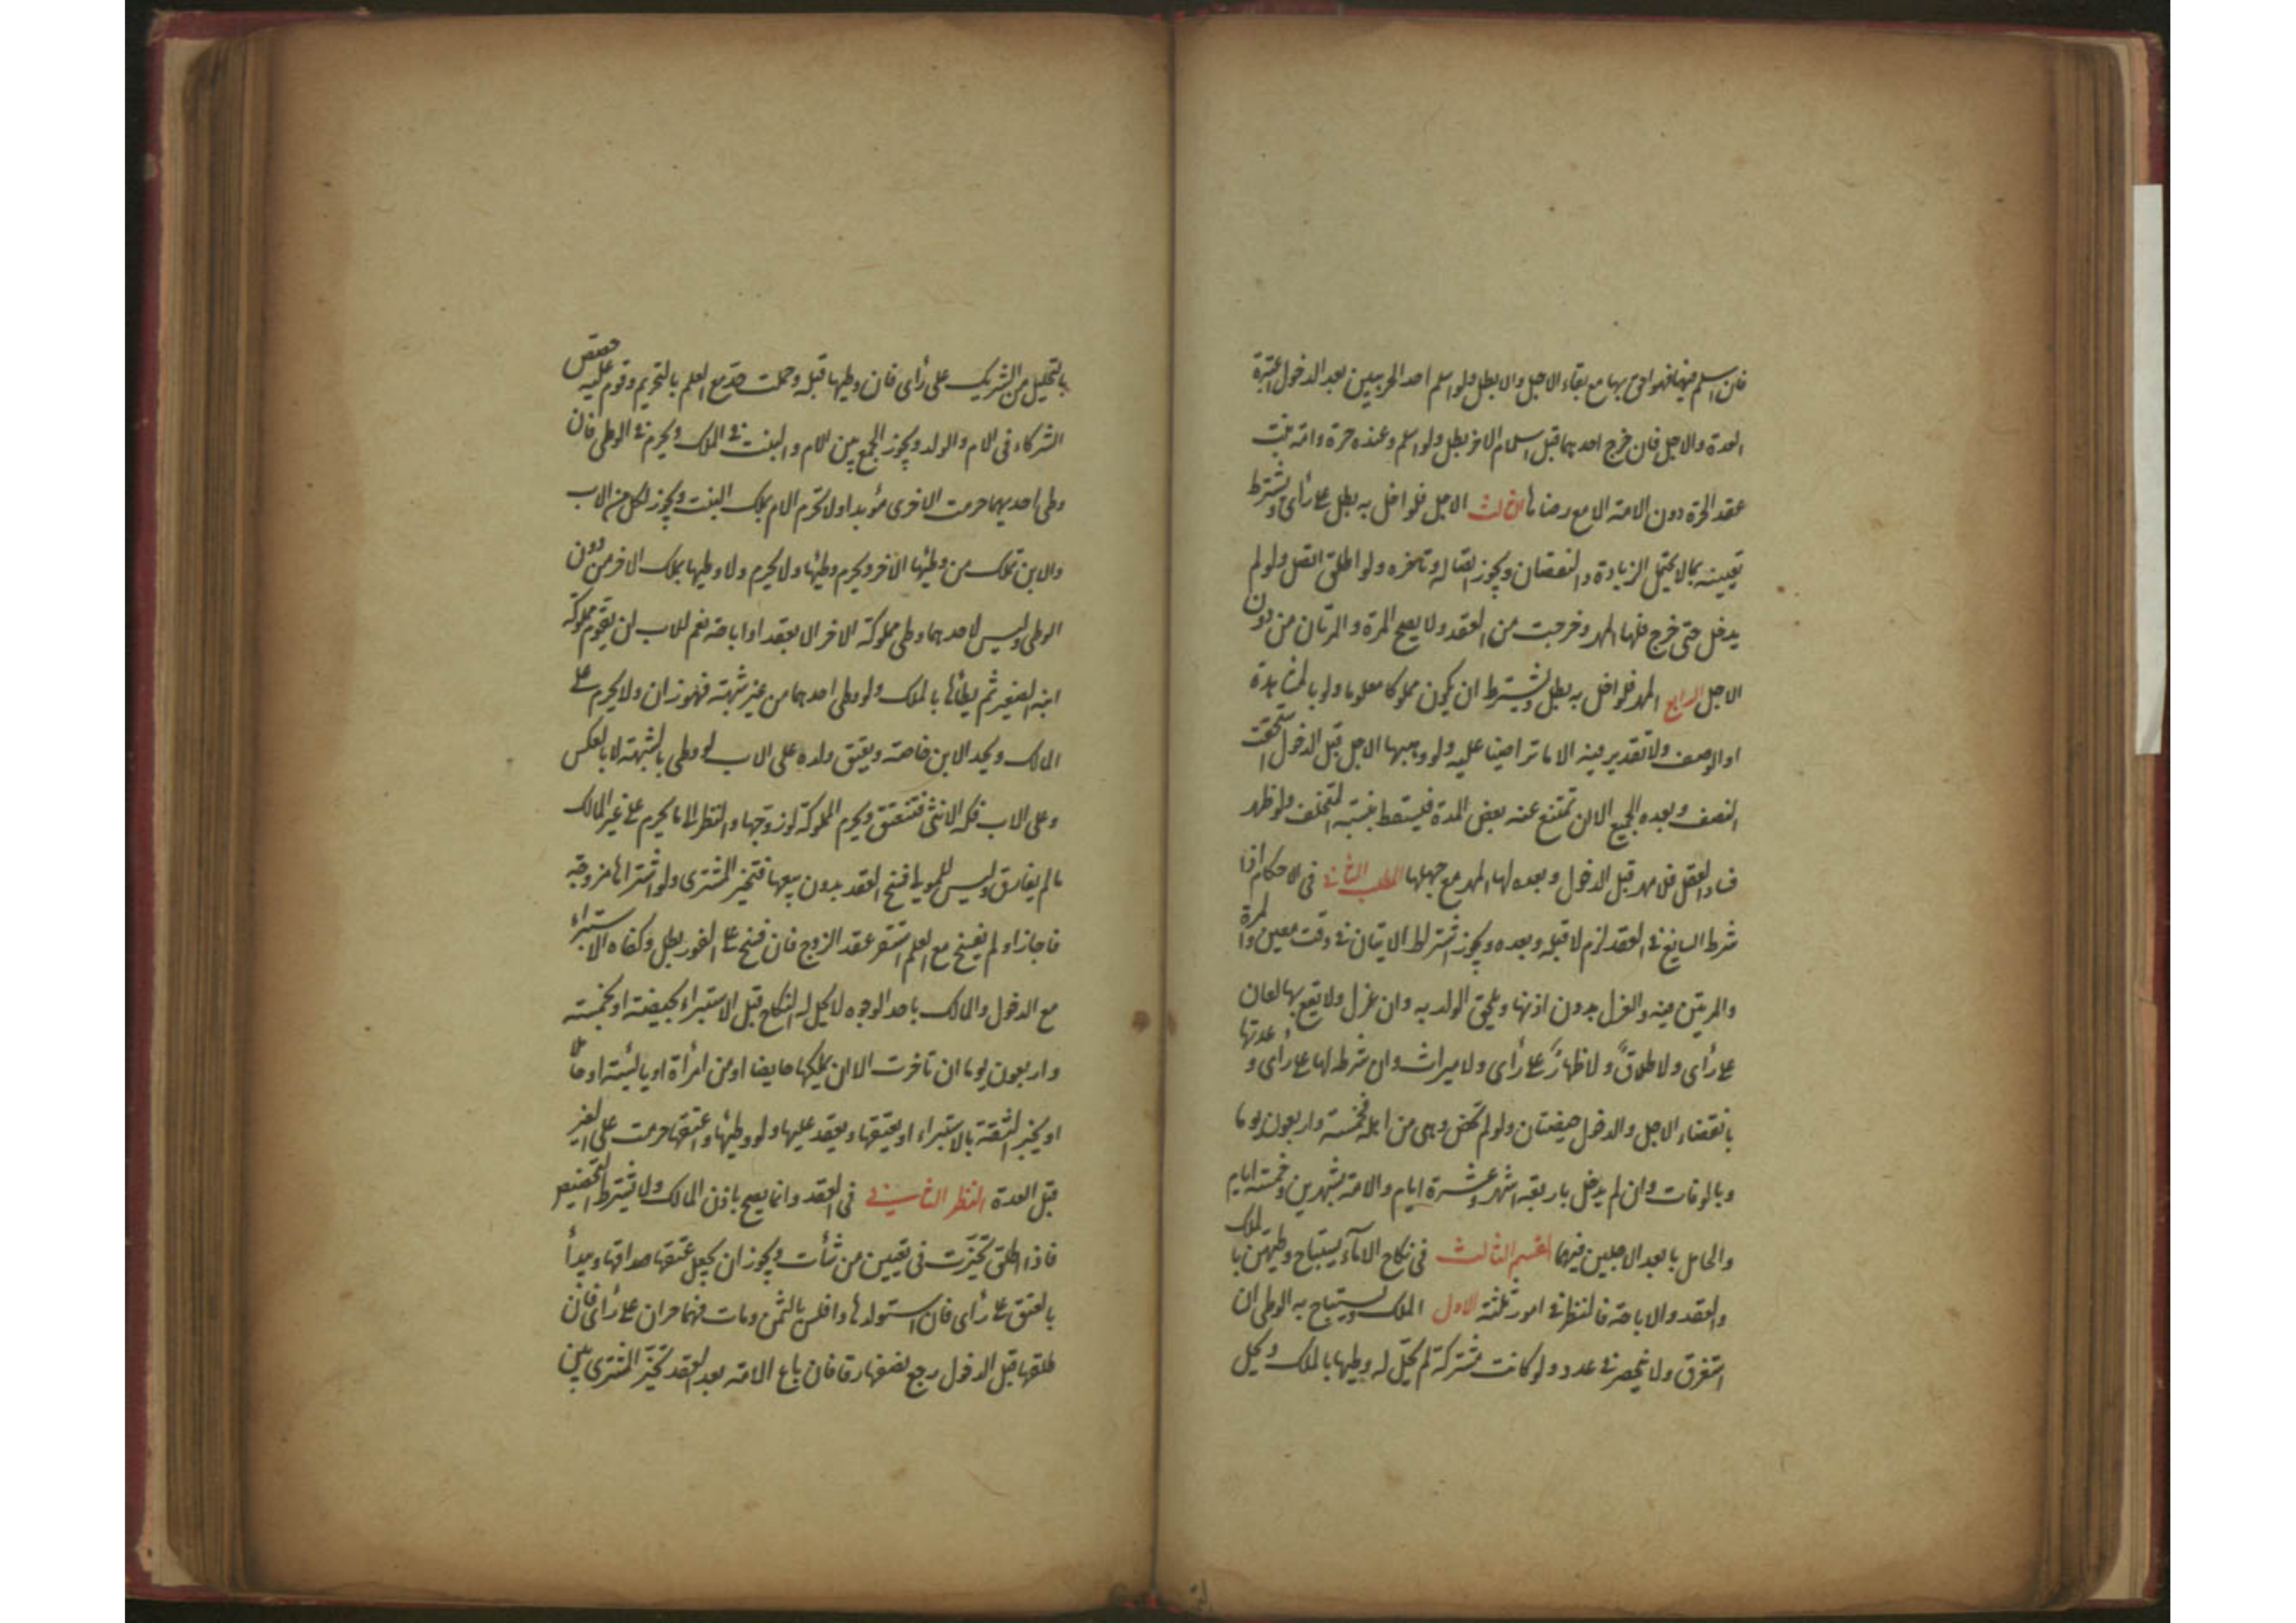 فان اسلم فيها فهو احق بها مع بقاء الاجل والا بطل ولو اسلم احد الحربيين بعد الدخول اعتبرة
العدة والاجل فان خرج احدهما قبل اسلام الاخر بطل ولو اسلم وعنده حرة وامة ثبت
عقد الحرة دون الامة الا مع رضاها الثالث الاجل فلو اخل به بطل على رأى ويشترط
تعيينه بما لا يحتمل الزيادة والنقصان ويجوز اتصاله وتاخره ولو اطلق اتصل ولو لم
يدخل حتى خرج فلها المهر وخرجت من العقد ولا يصح المرة والمرتان من دون
الاجل الرابع المهر فلو اخل به بطل ويشترط ان يكون مملوكا معلوما ولو بالمشاهدة
او الوصف ولا تقدير فيه الا ما تراضيا عليه ولو وهبها الاجل قبل الدخول استحقت
النصف وبعده الجميع الا ان تمتنع عنه بعض المدة فيسقط بنسبة المتخلف ولو ظهر
فساد العقد فلا مهر قبل الدخول وبعده لها المهر مع جهلها المطلب الثانى فى الاحكام اذا
شرط السايغ فى العقد لزم لا قبله وبعده ويجوز اشتراط الاتيان فى وقت معين والمرة
والمرتين فيه والعزل بدون اذنها ويلحق الولد به وان عزل ولا يقع بها لعان
على رأى ولا طلاق ولا ظهار على رأى ولا ميراث وان شرط لها على رأى وعدتها
بانقضاء الاجل والدخول حيضتان ولو لم تحض وهى من اهله فخمسة واربعون يوما
وبالوفات وان لم يدخل باربعة اشهر وعشرة ايام والامة بشهرين وخمسة ايام
والحامل بابعد الاجلين فيهما القسم الثالث فى نكاح الاماء يستباح وطيهن بالملك
والعقد والاباحة فالنظر فى امور ثلثة الاول الملك ويستباح به الوطى ان
استغرق ولا ينحصر فى عدد ولو كانت مشتركة لم يحل له وطيها بالملك ويحل
بالتحليل من الشريك على رأى فان وطيها قبله وحملت حد مع العلم بالتحريم وقوم عليه حصص
الشركاء فى الام والولد ويجوز الجمع بين الام والبنت فى الملك ويحرم فى الوطى فان
وطى احديهما حرمت الاخرى مؤبدا ولا تحرم الام بملك البنت ويجوز لكل من الاب
والابن تملك من وطيها الاخر ويحرم وطيها ولا يحرم ولا وطيها بملك الاخر من دون
الوطى وليس لاحدهما وطى مملوكة الاخر الا بعقد او اباحة نعم للاب ان يقوم مملوكة
ابنه الصغير ثم يطأها بالملك ولو وطى احدهما من غير شبهة فهو زان ولا يحرم على
المالك ويحد الابن خاصة ويعتق ولده على الاب لو وطى بالشبهة لا بالعكس
وعلى الاب فكه الا الانثى فتنعتق ويحرم المملوكة لو زوجها والنظر الى ما يحرم على غير المالك
ما لم يفارق وليس للمولى فسخ العقد بدون بيعها فتخير المشترى ولو اشتراها مزوجة
فاجاز او لم يفسخ مع العلم استقر عقد الزوج فان فسخ على الفور بطل وكفاه الاستبراء
مع الدخول والمالك باحد الوجوه لا يحل له النكاح قبل الاستبراء بحيضة او بخمسة
واربعون يوما ان تاخرت الا ان يملكها حايضا او من امرأة او يائسة او حاملا
او يخبر الثقة بالاستبراء او يعتقها ويعقد عليها ولو وطيها واعتقها حرمت على الغير
قبل العدة النظر الثانى فى العقد وانما يصح باذن المالك ولا يشترط التخصيص
فاذا اطلق تخيرت فى تعيين من شأت ويجوز ان يجعل عتقها صداقها ويبدأ
بالعتق على رأى فان استولدها وافلس بالثمن ومات فهما حران على رأى فان
طلقها قبل الدخول رجع نصفها رقا فان باع الامة بعد العقد تخير المشترى بين